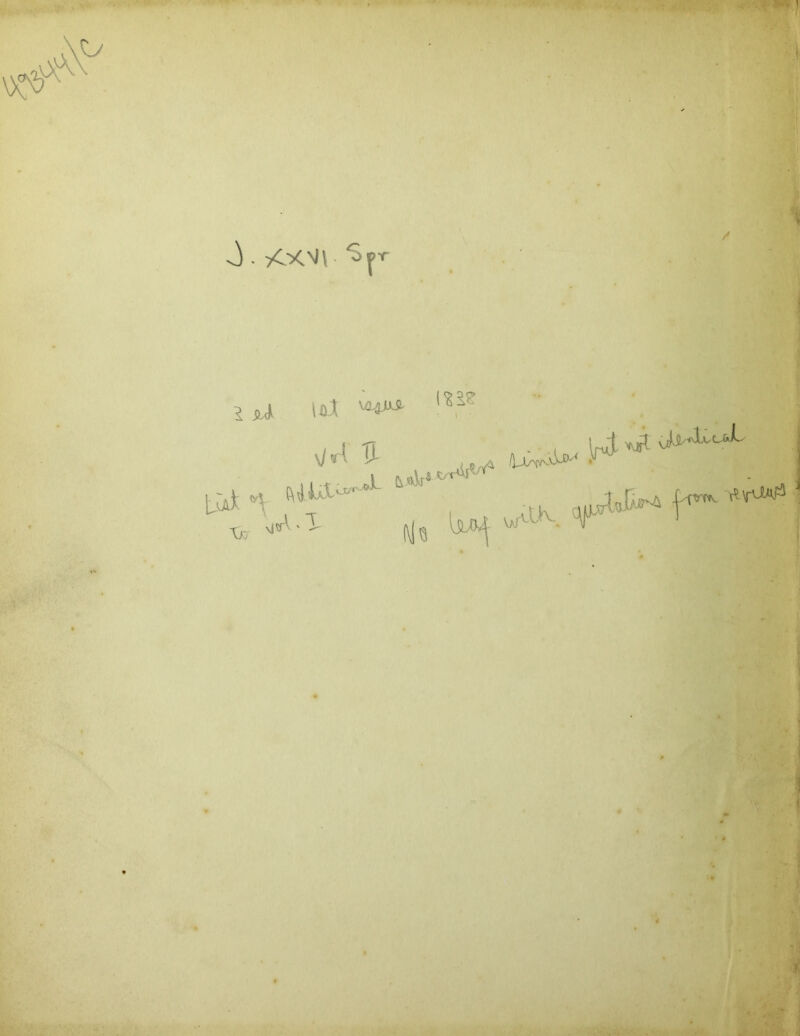 J. XXVI Spr
3 ed 1st issue 1838
Vol II
List of Additional subscribers similar but not identical
To vol. I No leaf with quotations from reviews